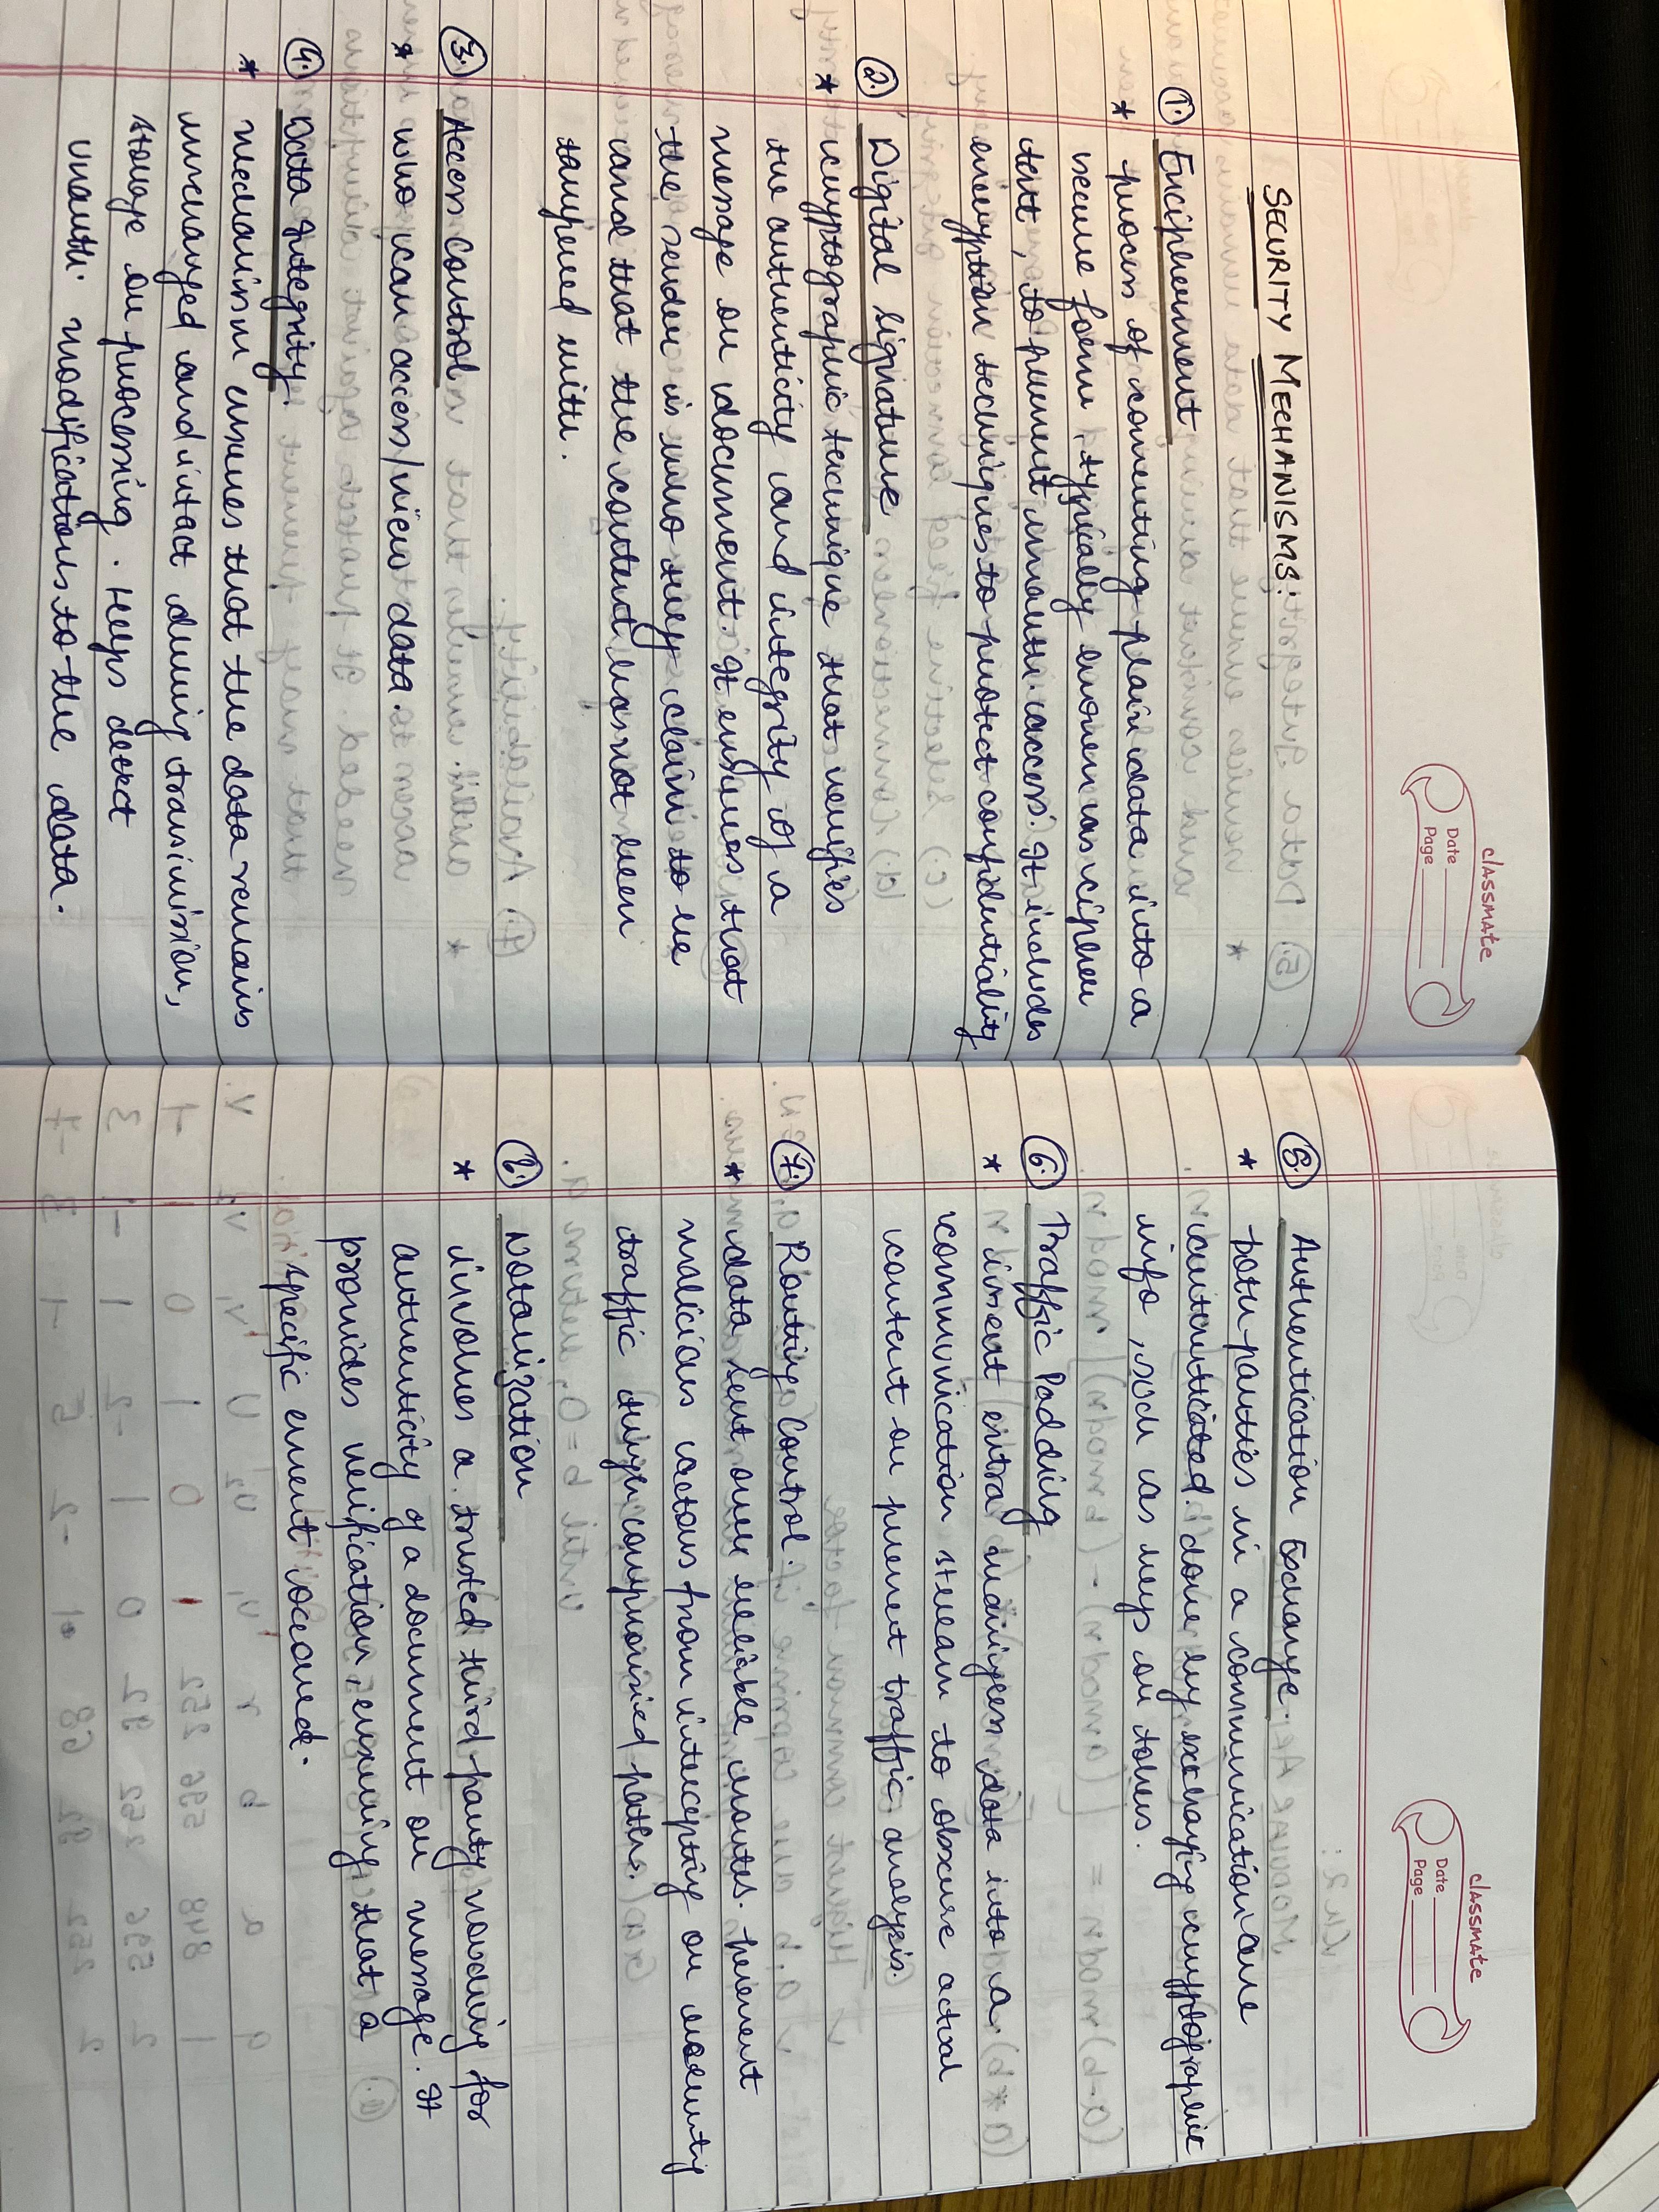 classmate
Date
Page
SECURITY MECHANISMS:
1. Encipherment
* process of converting plain data into a
secure form, typically known as cipher
text, to prevent unauth. access. It includes
encryption techniques to protect confidentiality
2. Digital Signature
* cryptographic technique that verifies
the authenticity and integrity of a
message or document. It ensures that
the sender is who they claim to be
and that the content has not been
tampered with.
3. Access Control
* who can access/view data.
4. Data Integrity.
* mechanism ensures that the data remains
unchanged and intact during transimission,
storage or processing. Helps detect
unauth. modifications to the data.
classmate
Date
Page
5. Authentication Exchange.
* both parties in a communication are
authenticated. done by exchaging cryptographic
info, such as keys or tokens.
6. Traffic Padding
* insert extra data into a
communication stream to obscure actual
content or prevent traffic analysis.
7. Routing Control.
* data sent over reliable routes. prevent
malicious actors from intercepting or
traffic compromised paths.
8. Notarization
* involves a trusted third party for
authenticity of a document or message. It
provides verification, ensuring that a
specific event occured.